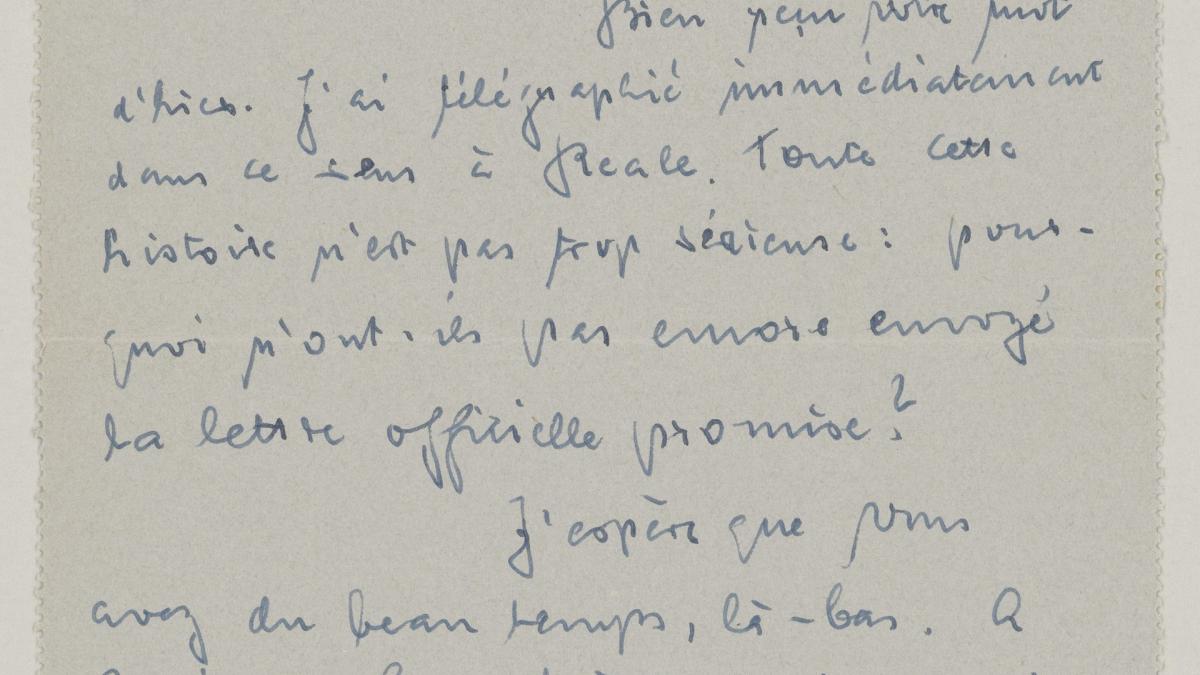 Bien reçu votre mot
d'hier. J'ai télégraphié immédiatement
dans ce sens à Reale. Toute cette
histoire n'est pas trop sérieuse : pour-
quoi n'ont-ils pas encore envoyé
la lettre officielle promise ?
J'espère que vous
avez du beau temps, là-bas. A